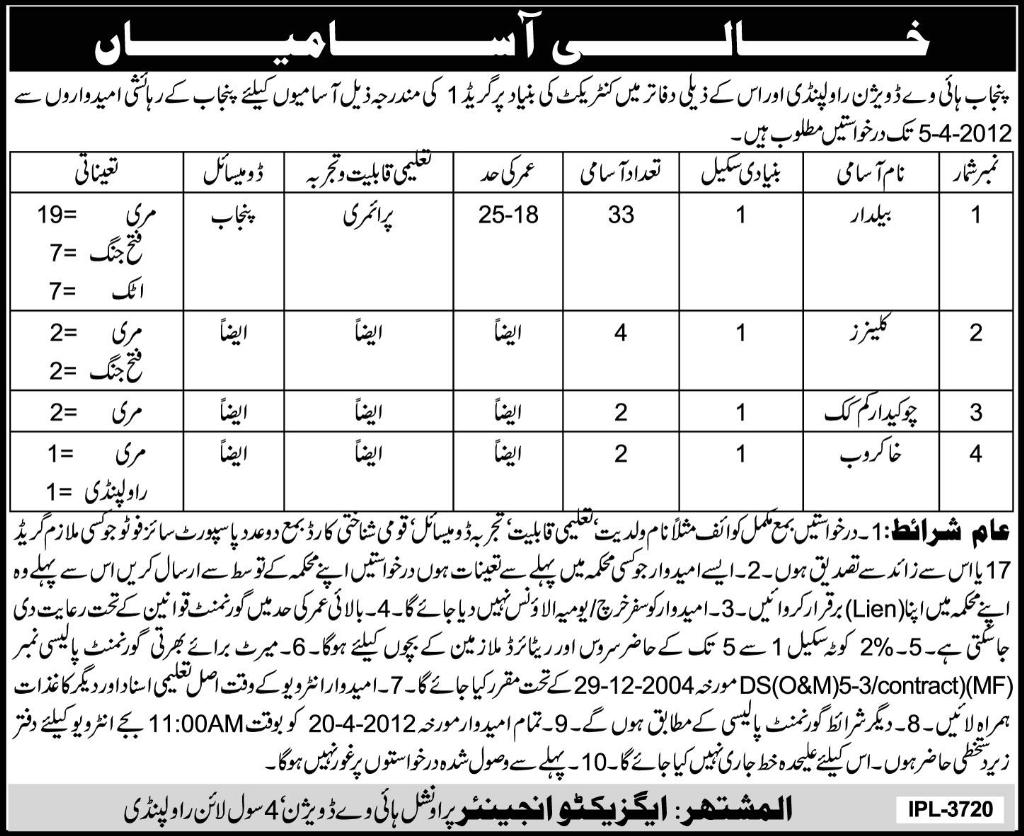 خالی آسامیاں
پنجاب ہائی وے ڈویژن راولپنڈی اور اس کے ذیلی دفاتر میں کنٹریکٹ کی بنیاد پر گریڈ 1 کی مندرجہ ذیل آسامیوں کیلئے پنجاب کے رہائشی امیدواروں سے
5-4-2012 تک درخواستیں مطلوب ہیں۔
نمبر شمار نام آسامی بنیادی سکیل تعداد آسامی عمر کی حد تعلیمی قابلیت و تجربہ ڈومیسائل تعیناتی
1 بیلدار 1 33 25-18 پرائمری پنجاب مری =19
فتح جنگ =7
اٹک =7
2 کلینرز 1 4 ایضاً ایضاً ایضاً مری =2
فتح جنگ =2
3 چوکیدار کم کک 1 2 ایضاً ایضاً ایضاً مری =2
4 خاکروب 1 2 ایضاً ایضاً ایضاً مری =1
راولپنڈی =1
عام شرائط: 1۔ درخواستیں بمع مکمل کوائف مثلاً نام ولدیت، تعلیمی قابلیت، تجربہ ڈومیسائل، قومی شناختی کارڈ بمع دو عدد پاسپورٹ سائز فوٹو جو کسی ملازم گریڈ
17 یا اس سے زائد سے تصدیق ہوں۔ 2۔ ایسے امیدوار جو کسی محکمہ میں پہلے سے تعینات ہوں درخواستیں اپنے محکمہ کے توسط سے ارسال کریں اس سے پہلے وہ
اپنے محکمہ میں اپنا (Lien) برقرار کروائیں۔ 3۔ امیدوار کو سفر خرچ/یومیہ الاؤنس نہیں دیا جائے گا۔ 4۔ بالائی عمر کی حد میں گورنمنٹ قوانین کے تحت رعایت دی
جاسکتی ہے۔ 5۔ 2% کوٹہ سکیل 1 سے 5 تک کے حاضر سروس اور ریٹائرڈ ملازمین کے بچوں کیلئے ہوگا۔ 6۔ میرٹ برائے بھرتی گورنمنٹ پالیسی نمبر
DS(O&M)5-3/contract)(MF) مورخہ 29-12-2004 کے تحت مقرر کیا جائے گا۔ 7۔ امیدوار انٹرویو کے وقت اصل تعلیمی اسناد اور دیگر کاغذات
ہمراہ لائیں۔ 8۔ دیگر شرائط گورنمنٹ پالیسی کے مطابق ہوں گے۔ 9۔ تمام امیدوار مورخہ 20-4-2012 کو بوقت 11:00AM بجے انٹرویو کیلئے دفتر
زیر دستخطی حاضر ہوں۔ اس کیلئے علیحدہ خط جاری نہیں کیا جائے گا۔ 10۔ پہلے سے وصول شدہ درخواستوں پر غور نہیں ہوگا۔
المشتہر: ایگزیکٹو انجینئر پراونشل ہائی وے ڈویژن، 4 سول لائن راولپنڈی
IPL-3720